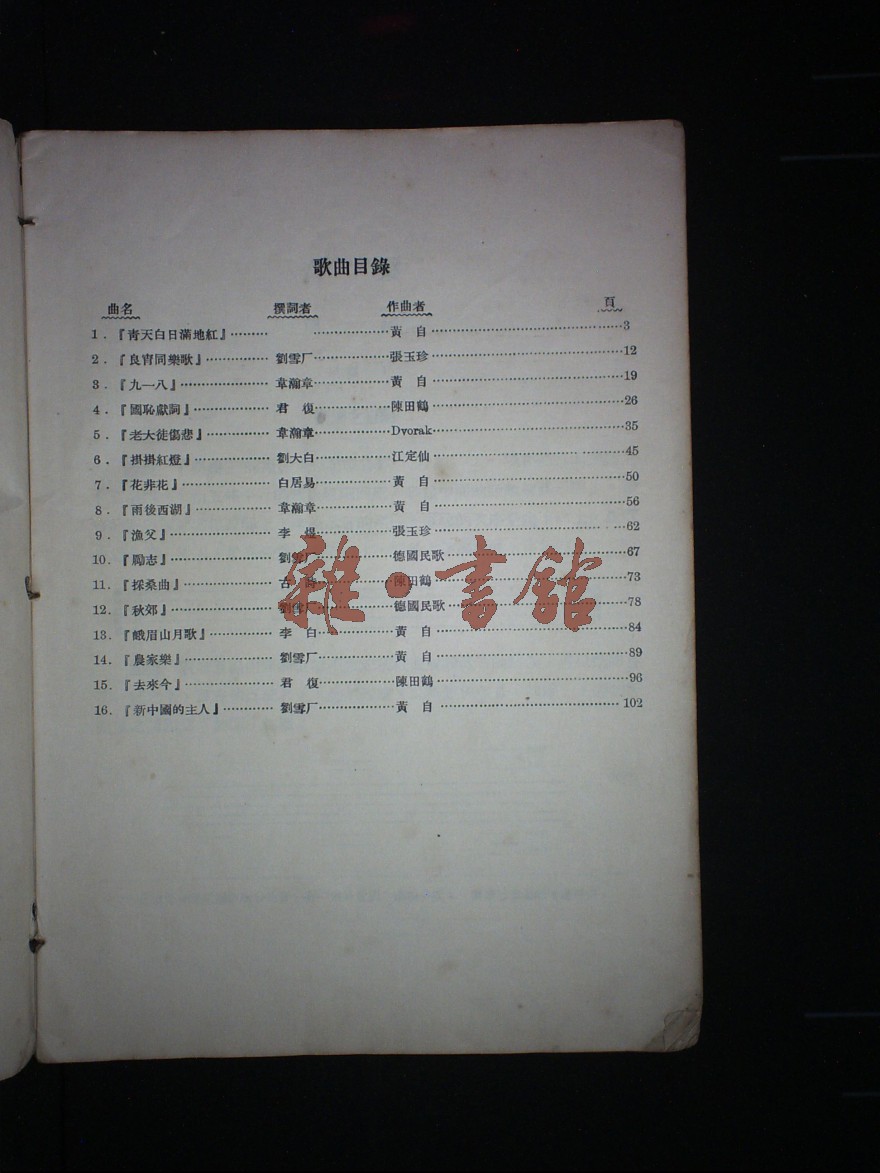 歌曲目錄
曲名 撰詞者 作曲者 頁
1.『靑天白日滿地紅』………　　……………黃　自……………3
2.『良宵同樂歌』……………劉雪厂……………張玉珍……………12
3.『九一八』……………韋瀚章……………黃　自……………19
4.『國恥獻詞』……………君　復……………陳田鶴……………26
5.『老大徒傷悲』……………韋瀚章……………Dvorak……………35
6.『掛掛紅燈』……………劉大白……………江定仙……………45
7.『花非花』……………白居易……………黃　自……………50
8.『雨後西湖』……………韋瀚章……………黃　自……………56
9.『漁父』……………李　煜……………張玉珍……………62
10.『勵志』……………劉雪厂……………德國民歌……………67
11.『採桑曲』……………古　詩……………陳田鶴……………73
12.『秋郊』……………劉雪厂……………德國民歌……………78
13.『峨眉山月歌』……………李　白……………黃　自……………84
14.『農家樂』……………劉雪厂……………黃　自……………89
15.『去來今』……………君　復……………陳田鶴……………96
16.『新中國的主人』……………劉雪厂……………黃　自……………102
雜·書館